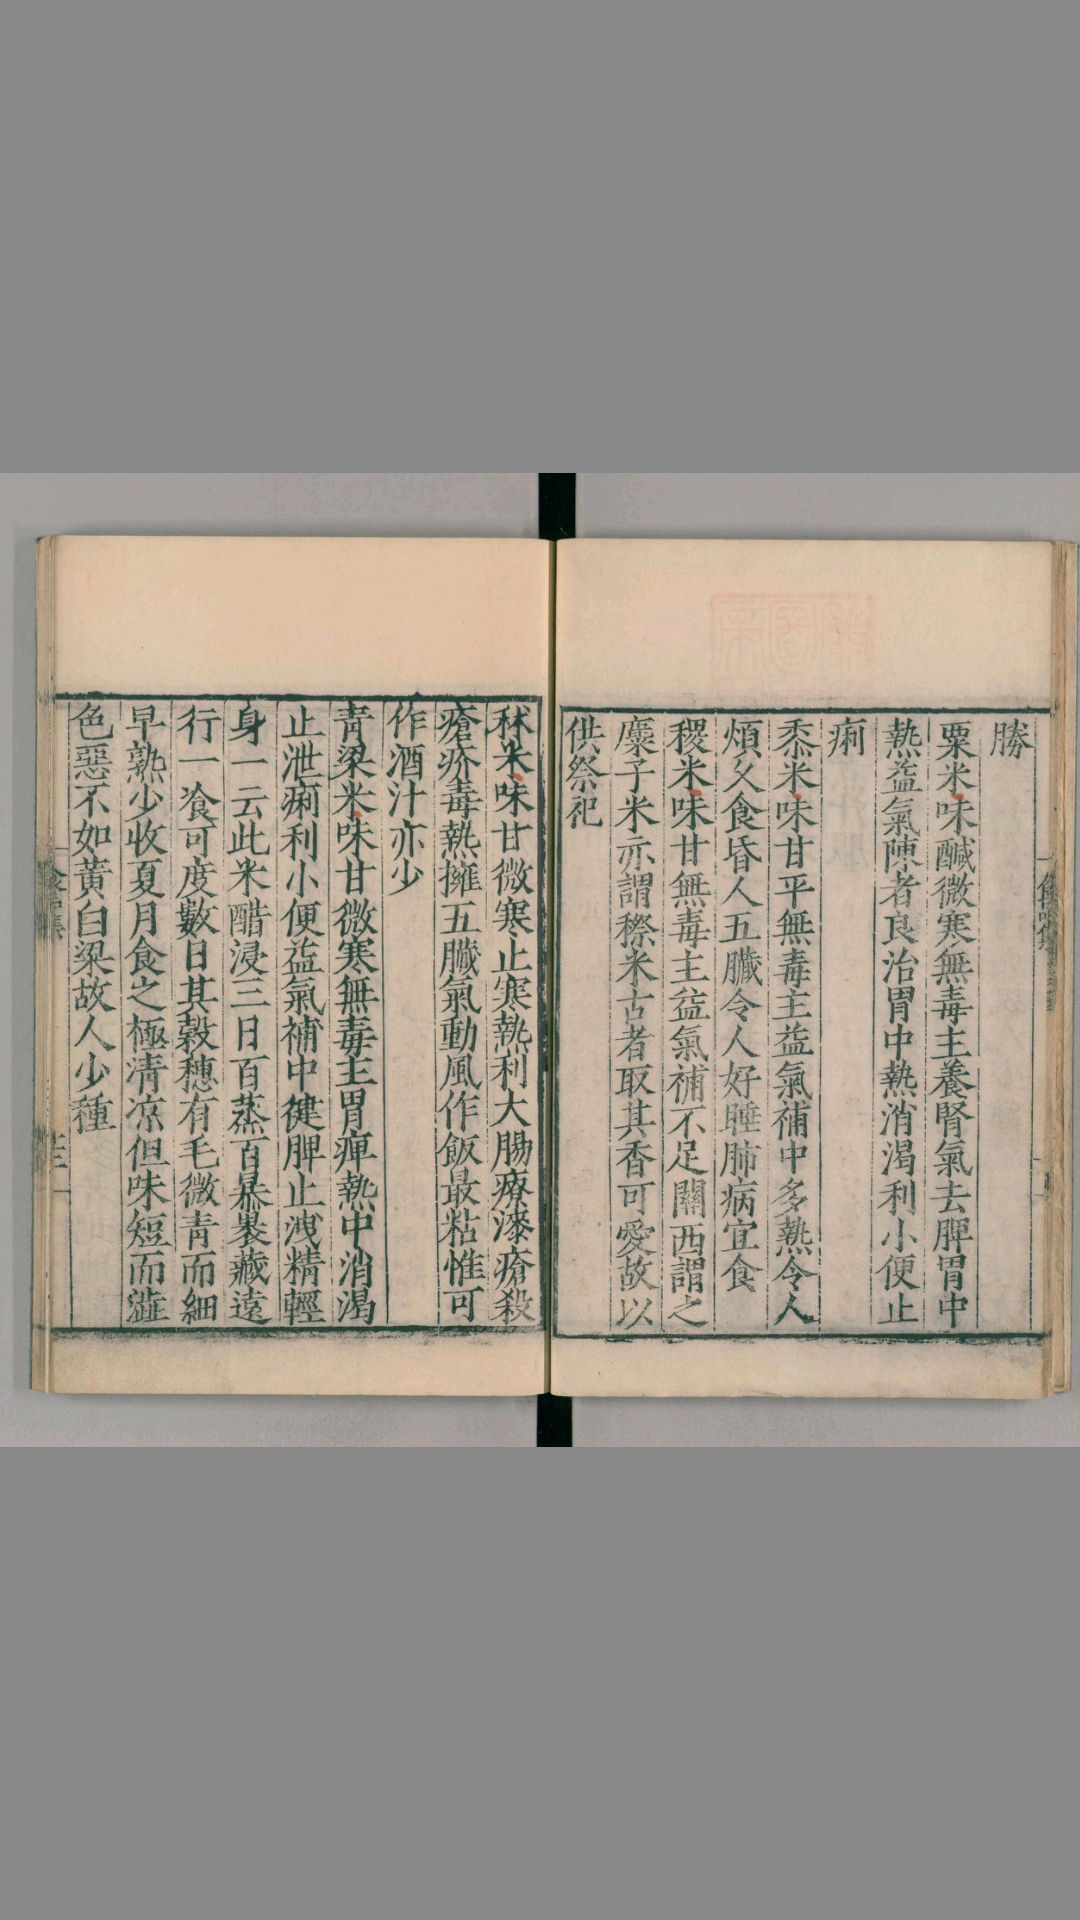 勝
粟米味鹹微寒無毒主養腎氣去脾胃中
熱益氣陳者良治胃中熱消渴利小便止
痢
黍米味甘平無毒主益氣補中多熱令人
煩久食昏人五臟令人好睡肺病宜食
稷米味甘無毒主益氣補不足關西謂之
糜子米亦謂穄米古者取其香可愛故以
供祭祀
秫米味甘微寒止寒熱利大腸療漆瘡殺
瘡疥毒熱擁五臟氣動風作飯最粘惟可
作酒汁亦少
青粱米味甘微寒無毒主胃痺熱中消渴
止泄痢利小便益氣補中健脾止洩精輕
身一云此米醋浸三日百蒸百暴裹藏遠
行一飡可度數日其穀穗有毛微青而細
早熟少收夏月食之極清凉但味短而澁
色惡不如黃白粱故人少種